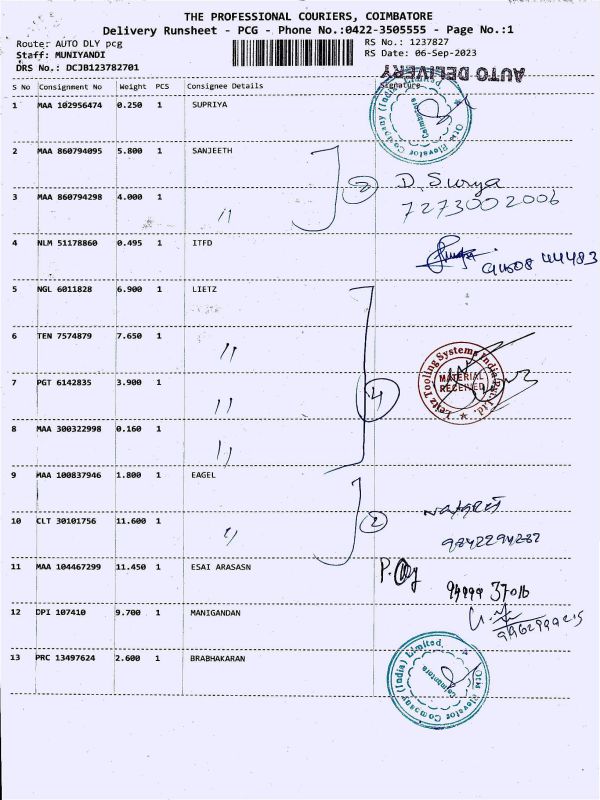 THE PROFESSIONAL COURIERS, COIMBATORE
Delivery Runsheet - PCG - Phone No.:0422-3505555 - Page No.:1
Route: AUTO DLY pcg
RS No.: 1237827
Staff: MUNIYANDI
RS Date: 06-Sep-2023
DRS No.: DCJB123782701
AUTO DELIVERY
S No Consignment No Weight PCS Consignee Details Signature
1 MAA 102956474 0.250 1 SUPRIYA
Otis Elevator Company (India) Limited
Coimbatore
2 MAA 860794095 5.800 1 SANJEETH
D. Surya
3 MAA 860794298 4.000 1 " 2
7273002006
4 NLM 51178860 0.495 1 ITFD
5 NGL 6011828 6.900 1 LIETZ
6 TEN 7574879 7.650 1 "
Leitz Tooling Systems India Pvt. Ltd.
MATERIAL
RECEIVED
7 PGT 6142835 3.900 1 " 4
8 MAA 300322998 0.160 1 "
9 MAA 100837946 1.800 1 EAGEL
10 CLT 30101756 11.600 1 " 2
9842294287
11 MAA 104467299 11.450 1 ESAI ARASASN
12 DPI 107410 9.700 1 MANIGANDAN
13 PRC 13497624 2.600 1 BRABHAKARAN
Otis Elevator Company (India) Limited
Coimbatore